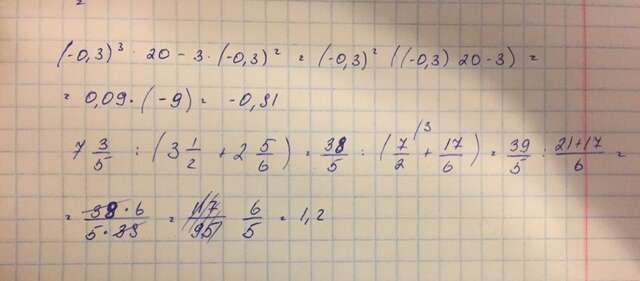 (-0,3)³ · 20 - 3 · (-0,3)² = (-0,3)² ((-0,3) 20 - 3) =
= 0,09 · (-9) = -0,81
7 3/5 : (3 1/2 + 2 5/6) = 38/5 : (7/2 /3 + 17/6) = 39/5 : 21+17/6 =
= 38·6/5·38 = 117/95 6/5 = 1,2